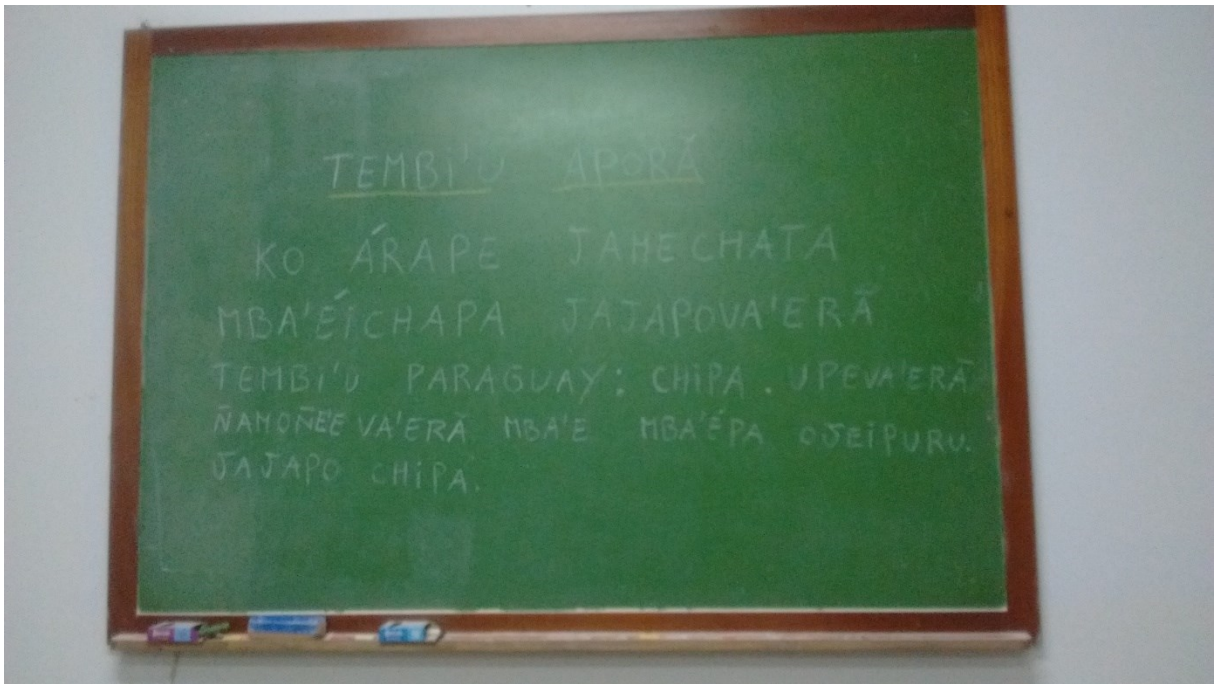 TEMBI'U APORÃ
KO ÁRAPE JAHECHATA
MBA'ÉICHAPA JAJAPOVA'ERÃ
TEMBI'U PARAGUAY: CHIPA. UPEVA'ERÃ
ÑAMOÑE'E VA'ERÃ MBA'E MBA'ÉPA OJEIPURU.
JAJAPO CHIPA.